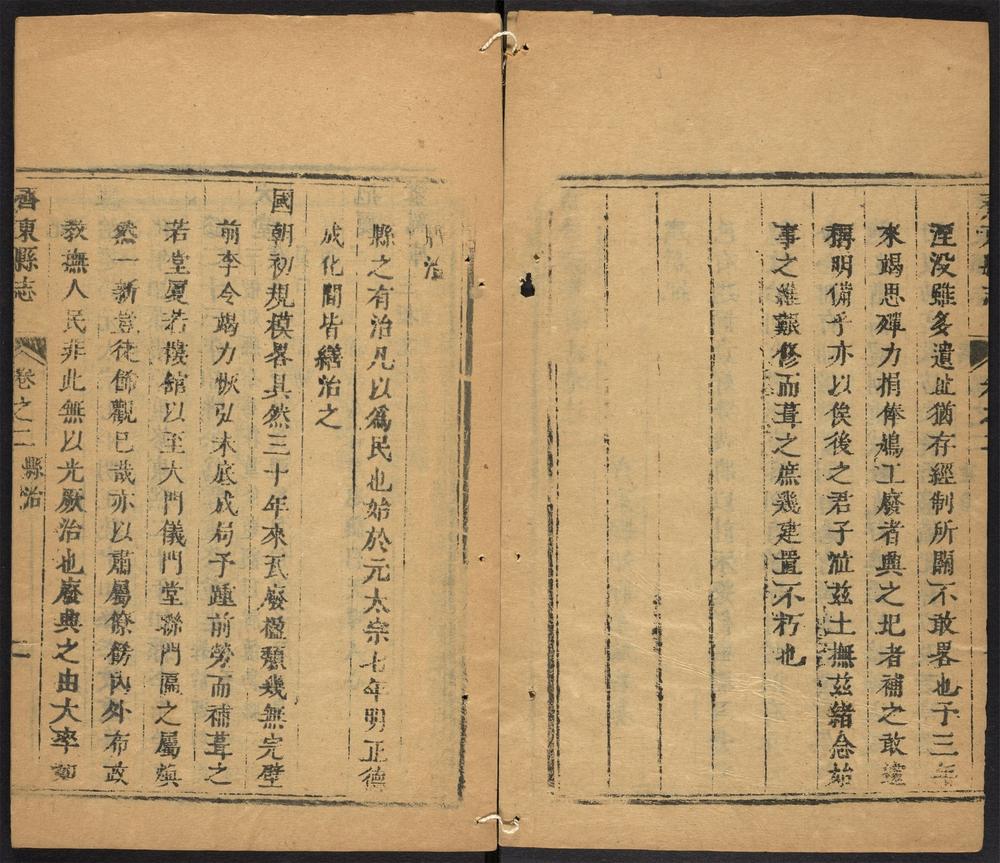 湮没雖多遺址猶存經制所關不敢畧也予三年
來竭思殫力捐俸鳩工廢者興之圮者補之敢
稱明備乎亦以俟後之君子涖兹土撫兹緒念始
事之維艱修而葺之庶幾建置不朽也
治
縣之有治凡以爲民也始於元太宗七年明正德
成化間皆繕治之
國朝初規模畧具然三十年來瓦廢楹頽幾無完壁
前李令竭力恢弘未底成局予踵前勞而補葺之
若堂厦若樓舘以至大門儀門堂聯門匾之屬煥
然一新豈徒飾觀已哉亦以肅屬僚餝内外布政
教撫人民非此無以光厥治也廢興之由大率如
齊東縣志 卷之二 縣治 二